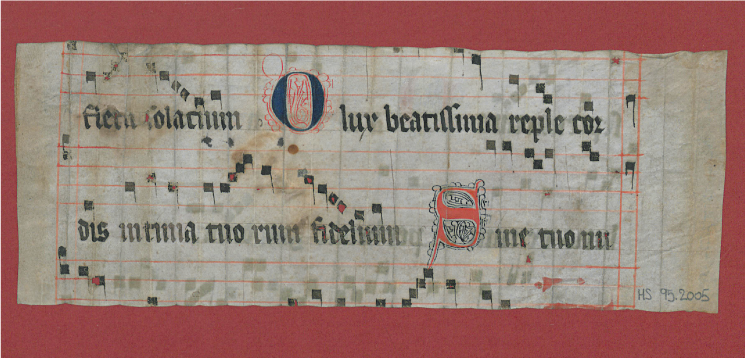 fletu solacium O lux beatissima reple cor
dis intima tuo rum fidelium S ine tuo nu
HS 95.2005